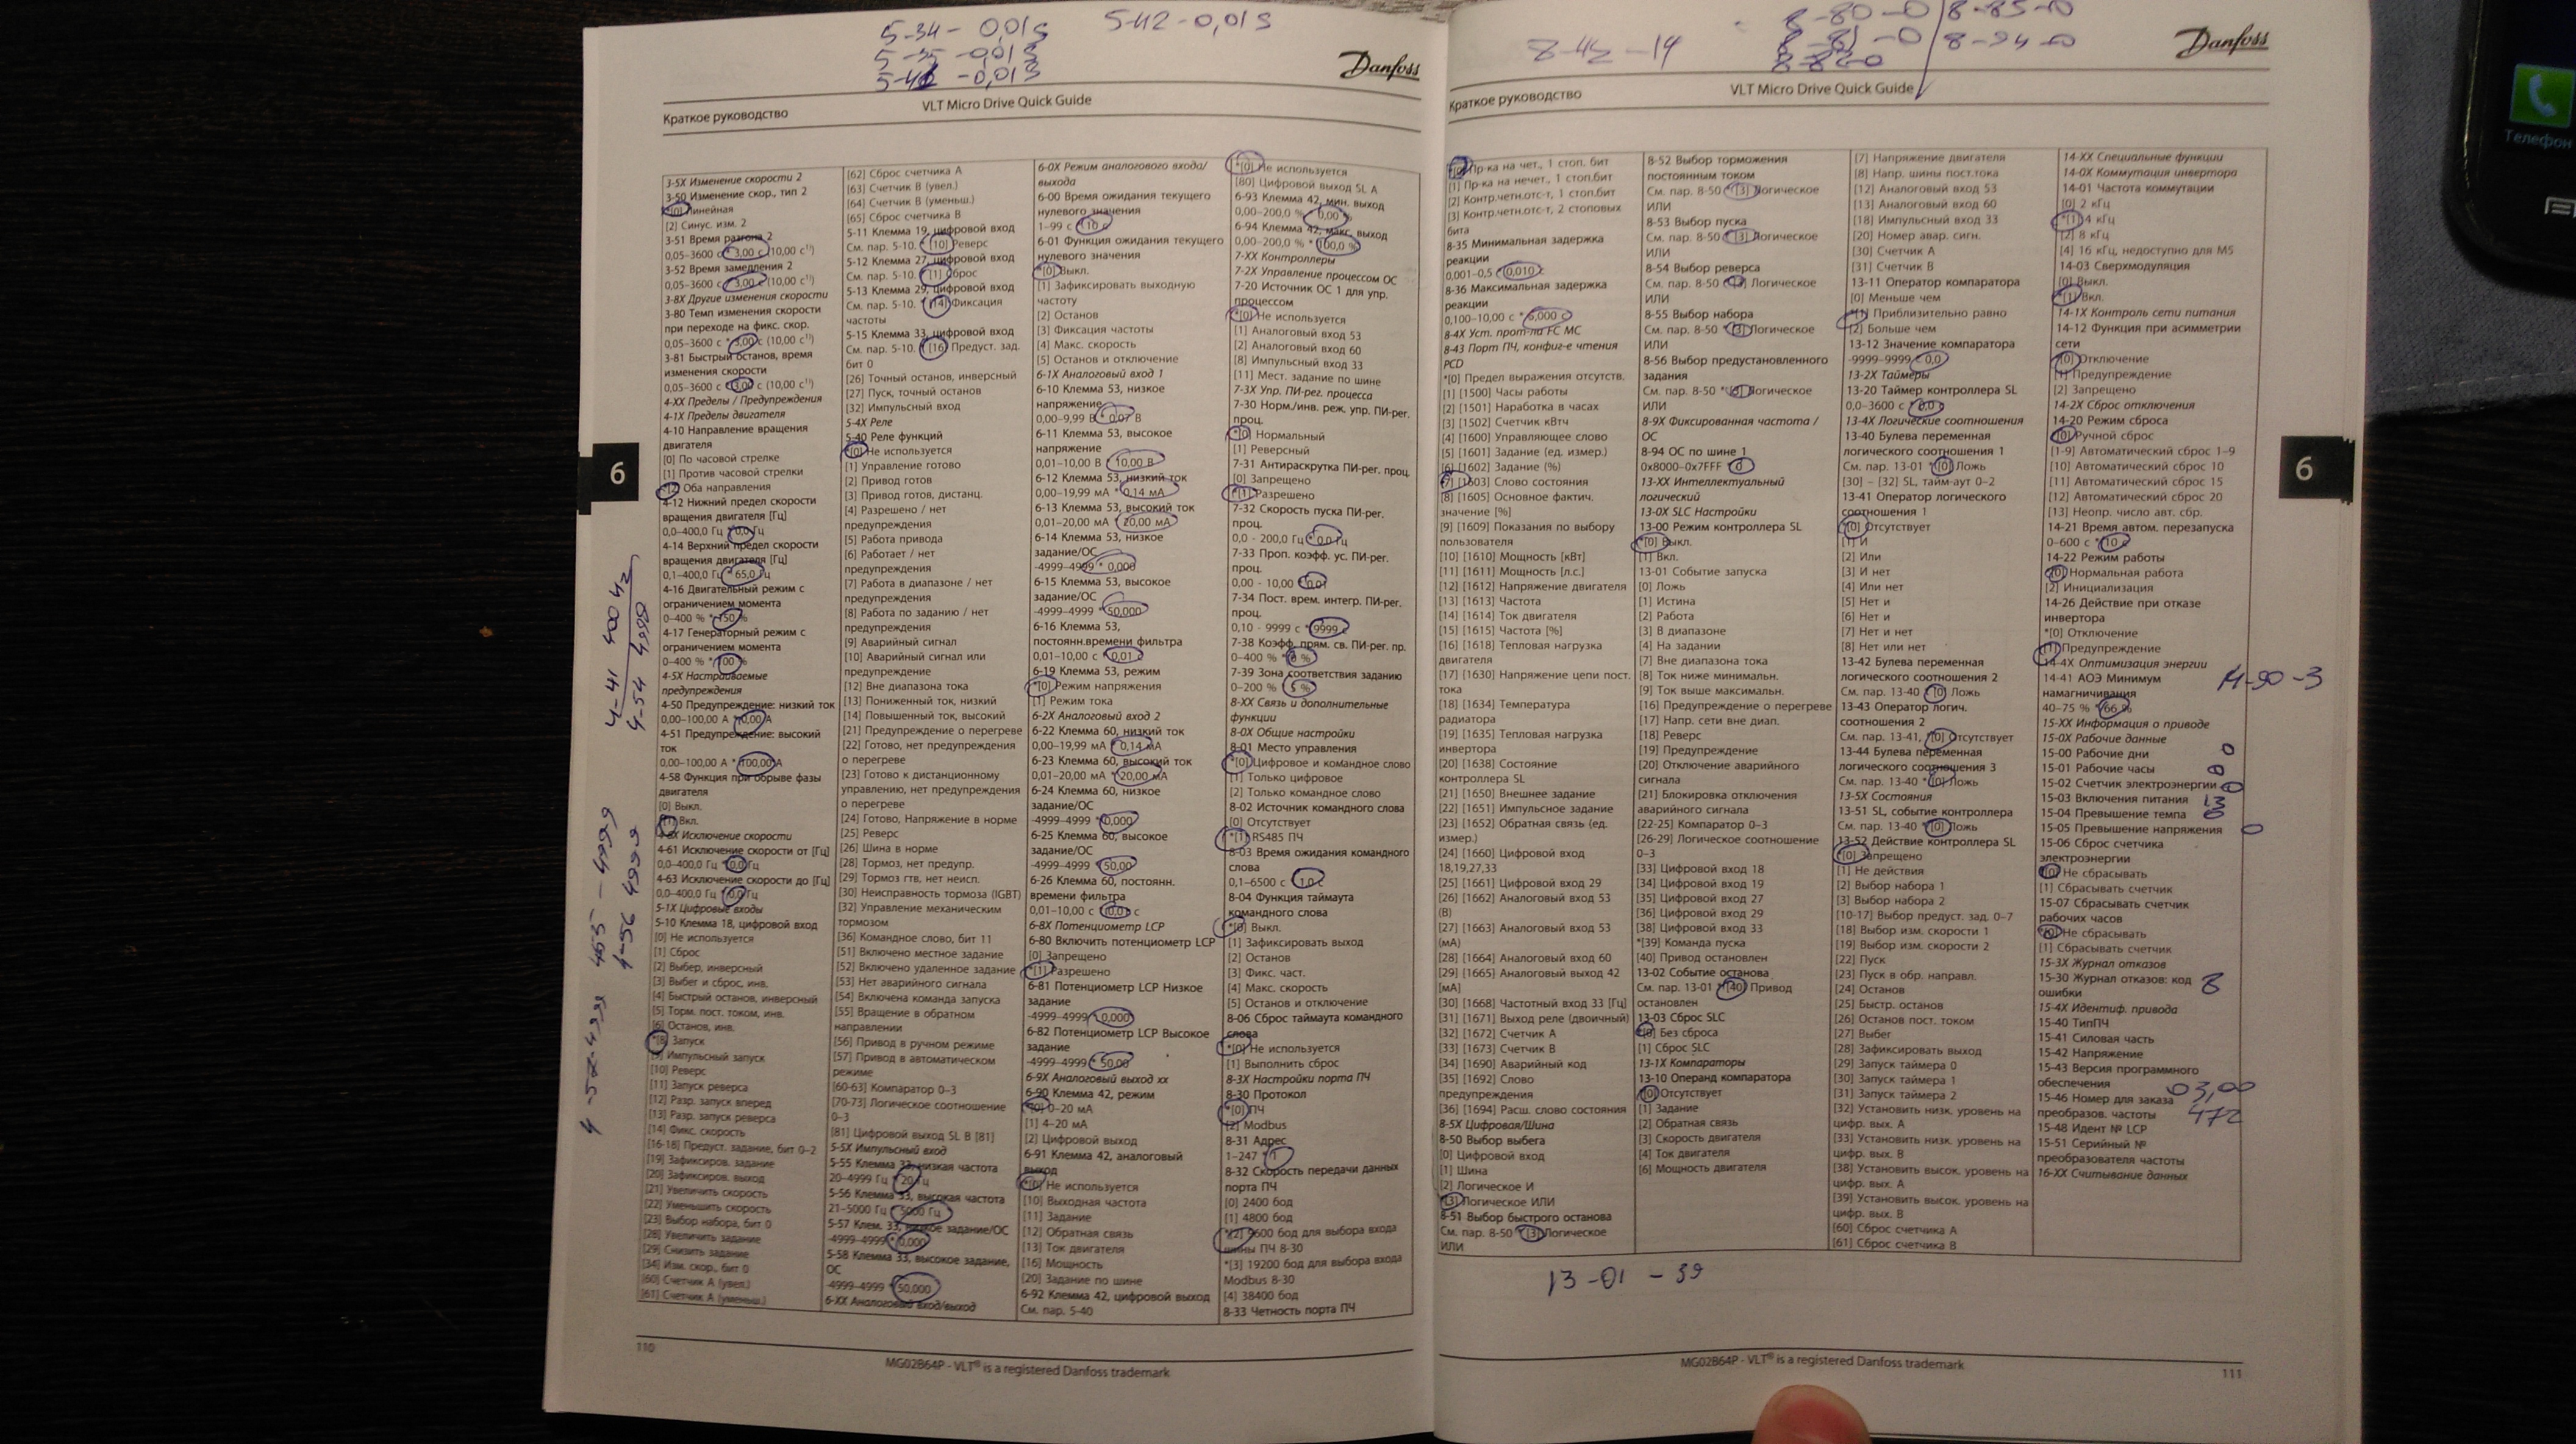 5-34 - 0,01s
5-35 - 0,01s
5-42 - 0,01s
Danfoss
Краткое руководство
VLT Micro Drive Quick Guide
3-5X Изменение скорости 2
3-50 Изменение скор., тип 2
*[0] Линейная
[2] Синус. изм. 2
3-51 Время разгона 2
0,05–3600 с * 3,00 с (10,00 с¹⁾)
3-52 Время замедления 2
0,05–3600 с * 3,00 с (10,00 с¹⁾)
3-8X Другие изменения скорости
3-80 Темп изменения скорости
при переходе на фикс. скор.
0,05–3600 с * 3,00 с (10,00 с¹⁾)
3-81 Быстрый останов, время
изменения скорости
0,05–3600 с * 3,00 с (10,00 с¹⁾)
4-XX Пределы / Предупреждения
4-1X Пределы двигателя
4-10 Направление вращения
двигателя
[0] По часовой стрелке
[1] Против часовой стрелки
*[2] Оба направления
4-12 Нижний предел скорости
вращения двигателя [Гц]
0,0–400,0 Гц * 0,0 Гц
4-14 Верхний предел скорости
вращения двигателя [Гц]
0,1–400,0 Гц * 65,0 Гц
4-16 Двигательный режим с
ограничением момента
0–400 % * 150 %
4-17 Генераторный режим с
ограничением момента
0–400 % * 100 %
4-5X Настраиваемые
предупреждения
4-50 Предупреждение: низкий ток
0,00–100,00 А * 0,00 А
4-51 Предупреждение: высокий
ток
0,00–100,00 А * 100,00 А
4-58 Функция при обрыве фазы
двигателя
[0] Выкл.
*[1] Вкл.
4-6X Исключение скорости
4-61 Исключение скорости от [Гц]
0,0–400,0 Гц * 0,0 Гц
4-63 Исключение скорости до [Гц]
0,0–400,0 Гц * 0,0 Гц
5-1X Цифровые входы
5-10 Клемма 18, цифровой вход
[0] Не используется
[1] Сброс
[2] Выбер, инверсный
[3] Выбег и сброс, инв.
[4] Быстрый останов, инверсный
[5] Торм. пост. током, инв.
[6] Останов, инв.
*[8] Запуск
[9] Импульсный запуск
[10] Реверс
[11] Запуск реверса
[12] Разр. запуск вперед
[13] Разр. запуск реверса
[14] Фикс. скорость
[16-18] Предуст. задание, бит 0–2
[19] Зафиксиров. задание
[20] Зафиксиров. выход
[21] Увеличить скорость
[22] Уменьшить скорость
[23] Выбор набора, бит 0
[28] Увеличить задание
[29] Снизить задание
[34] Изм. скор., бит 0
[60] Счетчик А (увел.)
[61] Счетчик А (уменьш.)
[62] Сброс счетчика А
[63] Счетчик В (увел.)
[64] Счетчик В (уменьш.)
[65] Сброс счетчика В
5-11 Клемма 19, цифровой вход
См. пар. 5-10. * [10] Реверс
5-12 Клемма 27, цифровой вход
См. пар. 5-10. * [1] Сброс
5-13 Клемма 29, цифровой вход
См. пар. 5-10. * [14] Фиксация
частоты
5-15 Клемма 33, цифровой вход
См. пар. 5-10. * [16] Предуст. зад.
бит 0
[26] Точный останов, инверсный
[27] Пуск, точный останов
[32] Импульсный вход
5-4X Реле
5-40 Реле функций
*[0] Не используется
[1] Управление готово
[2] Привод готов
[3] Привод готов, дистанц.
[4] Разрешено / нет
предупреждения
[5] Работа привода
[6] Работает / нет
предупреждения
[7] Работа в диапазоне / нет
предупреждения
[8] Работа по заданию / нет
предупреждения
[9] Аварийный сигнал
[10] Аварийный сигнал или
предупреждение
[12] Вне диапазона тока
[13] Пониженный ток, низкий
[14] Повышенный ток, высокий
[21] Предупреждение о перегреве
[22] Готово, нет предупреждения
о перегреве
[23] Готово к дистанционному
управлению, нет предупреждения
о перегреве
[24] Готово, Напряжение в норме
[25] Реверс
[26] Шина в норме
[28] Тормоз, нет предупр.
[29] Тормоз гтв, нет неисп.
[30] Неисправность тормоза (IGBT)
[32] Управление механическим
тормозом
[36] Командное слово, бит 11
[51] Включено местное задание
[52] Включено удаленное задание
[53] Нет аварийного сигнала
[54] Включена команда запуска
[55] Вращение в обратном
направлении
[56] Привод в ручном режиме
[57] Привод в автоматическом
режиме
[60-63] Компаратор 0–3
[70-73] Логическое соотношение
0–3
[81] Цифровой выход SL B [81]
5-5X Импульсный вход
5-55 Клемма 33, низкая частота
20–4999 Гц * 20 Гц
5-56 Клемма 33, высокая частота
21–5000 Гц * 5000 Гц
5-57 Клем. 33, низкое задание/ОС
-4999–4999 * 0,000
5-58 Клемма 33, высокое задание,
ОС
-4999–4999 * 50,000
6-XX Аналоговый вход/выход
6-0X Режим аналогового входа/
выхода
6-00 Время ожидания текущего
нулевого значения
1–99 с * 10 с
6-01 Функция ожидания текущего
нулевого значения
*[0] Выкл.
[1] Зафиксировать выходную
частоту
[2] Останов
[3] Фиксация частоты
[4] Макс. скорость
[5] Останов и отключение
6-1X Аналоговый вход 1
6-10 Клемма 53, низкое
напряжение
0,00–9,99 В * 0,07 В
6-11 Клемма 53, высокое
напряжение
0,01–10,00 В * 10,00 В
6-12 Клемма 53, низкий ток
0,00–19,99 мА * 0,14 мА
6-13 Клемма 53, высокий ток
0,01–20,00 мА * 20,00 мА
6-14 Клемма 53, низкое
задание/ОС
-4999–4999 * 0,000
6-15 Клемма 53, высокое
задание/ОС
-4999–4999 * 50,000
6-16 Клемма 53,
постоянн.времени фильтра
0,01–10,00 с * 0,01 с
6-19 Клемма 53, режим
*[0] Режим напряжения
[1] Режим тока
6-2X Аналоговый вход 2
6-22 Клемма 60, низкий ток
0,00–19,99 мА * 0,14 мА
6-23 Клемма 60, высокий ток
0,01–20,00 мА * 20,00 мА
6-24 Клемма 60, низкое
задание/ОС
-4999–4999 * 0,000
6-25 Клемма 60, высокое
задание/ОС
-4999–4999 * 50,00
6-26 Клемма 60, постоянн.
времени фильтра
0,01–10,00 с * 0,01 с
6-8X Потенциометр LCP
6-80 Включить потенциометр LCP
[0] Запрещено
*[1] Разрешено
6-81 Потенциометр LCP Низкое
задание
-4999–4999 * 0,000
6-82 Потенциометр LCP Высокое
задание
-4999–4999 * 50,00
6-9X Аналоговый выход xx
6-90 Клемма 42, режим
*[0] 0–20 мА
[1] 4–20 мА
[2] Цифровой выход
6-91 Клемма 42, аналоговый
выход
*[0] Не используется
[10] Выходная частота
[11] Задание
[12] Обратная связь
[13] Ток двигателя
[16] Мощность
[20] Задание по шине
6-92 Клемма 42, цифровой выход
См. пар. 5-40
*[0] Не используется
[80] Цифровой выход SL A
6-93 Клемма 42, мин. выход
0,00–200,0 % * 0,00 %
6-94 Клемма 42, макс. выход
0,00–200,0 % * 100,0 %
7-XX Контроллеры
7-2X Управление процессом ОС
7-20 Источник ОС 1 для упр.
процессом
*[0] Не используется
[1] Аналоговый вход 53
[2] Аналоговый вход 60
[8] Импульсный вход 33
[11] Мест. задание по шине
7-3X Упр. ПИ-рег. процесса
7-30 Норм./инв. реж. упр. ПИ-рег.
проц.
*[0] Нормальный
[1] Реверсный
7-31 Антираскрутка ПИ-рег. проц.
[0] Запрещено
*[1] Разрешено
7-32 Скорость пуска ПИ-рег.
проц.
0,0 - 200,0 Гц * 0,0 Гц
7-33 Проп. коэфф. ус. ПИ-рег.
проц.
0,00 - 10,00 * 0,01
7-34 Пост. врем. интегр. ПИ-рег.
проц.
0,10 - 9999 с * 9999 с
7-38 Коэфф. прям. св. ПИ-рег. пр.
0–400 % * 0 %
7-39 Зона соответствия заданию
0–200 % * 5 %
8-XX Связь и дополнительные
функции
8-0X Общие настройки
8-01 Место управления
*[0] Цифровое и командное слово
[1] Только цифровое
[2] Только командное слово
8-02 Источник командного слова
[0] Отсутствует
*[1] RS485 ПЧ
8-03 Время ожидания командного
слова
0,1–6500 с * 1,0 с
8-04 Функция таймаута
командного слова
*[0] Выкл.
[1] Зафиксировать выход
[2] Останов
[3] Фикс. част.
[4] Макс. скорость
[5] Останов и отключение
8-06 Сброс таймаута командного
слова
*[0] Не используется
[1] Выполнить сброс
8-3X Настройки порта ПЧ
8-30 Протокол
*[0] ПЧ
[2] Modbus
8-31 Адрес
1–247 * 1
8-32 Скорость передачи данных
порта ПЧ
[0] 2400 бод
[1] 4800 бод
*[2] 9600 бод для выбора входа
шины ПЧ 8-30
*[3] 19200 бод для выбора входа
Modbus 8-30
[4] 38400 бод
8-33 Четность порта ПЧ
6
4-41 400 Hz
4-54 4999
110
MG02B64P - VLT® is a registered Danfoss trademark
Danfoss
Краткое руководство
VLT Micro Drive Quick Guide
*[0] Пр-ка на чет., 1 стоп. бит
[1] Пр-ка на нечет., 1 стоп.бит
[2] Контр.четн.отс-т, 1 стоп.бит
[3] Контр.четн.отс-т, 2 стоповых
бита
8-35 Минимальная задержка
реакции
0,001–0,5 * 0,010 с
8-36 Максимальная задержка
реакции
0,100–10,00 с * 5,000 с
8-4X Уст. прот-ла FC MC
8-43 Порт ПЧ, конфиг-е чтения
PCD
*[0] Предел выражения отсутств.
[1] [1500] Часы работы
[2] [1501] Наработка в часах
[3] [1502] Счетчик кВтч
[4] [1600] Управляющее слово
[5] [1601] Задание (ед. измер.)
[6] [1602] Задание (%)
[7] [1603] Слово состояния
[8] [1605] Основное фактич.
значение [%]
[9] [1609] Показания по выбору
пользователя
[10] [1610] Мощность [кВт]
[11] [1611] Мощность [л.с.]
[12] [1612] Напряжение двигателя
[13] [1613] Частота
[14] [1614] Ток двигателя
[15] [1615] Частота [%]
[16] [1618] Тепловая нагрузка
двигателя
[17] [1630] Напряжение цепи пост.
тока
[18] [1634] Температура
радиатора
[19] [1635] Тепловая нагрузка
инвертора
[20] [1638] Состояние
контроллера SL
[21] [1650] Внешнее задание
[22] [1651] Импульсное задание
[23] [1652] Обратная связь (ед.
измер.)
[24] [1660] Цифровой вход
18,19,27,33
[25] [1661] Цифровой вход 29
[26] [1662] Аналоговый вход 53
(В)
[27] [1663] Аналоговый вход 53
(мА)
[28] [1664] Аналоговый вход 60
[29] [1665] Аналоговый выход 42
[мА]
[30] [1668] Частотный вход 33 [Гц]
[31] [1671] Выход реле (двоичный)
[32] [1672] Счетчик А
[33] [1673] Счетчик В
[34] [1690] Аварийный код
[35] [1692] Слово
предупреждения
[36] [1694] Расш. слово состояния
8-5X Цифровая/Шина
8-50 Выбор выбега
[0] Цифровой вход
[1] Шина
[2] Логическое И
*[3] Логическое ИЛИ
8-51 Выбор быстрого останова
См. пар. 8-50 * [3] Логическое
ИЛИ
8-52 Выбор торможения
постоянным током
См. пар. 8-50 * [3] Логическое
ИЛИ
8-53 Выбор пуска
См. пар. 8-50 * [3] Логическое
ИЛИ
8-54 Выбор реверса
См. пар. 8-50 * [3] Логическое
ИЛИ
8-55 Выбор набора
См. пар. 8-50 * [3] Логическое
ИЛИ
8-56 Выбор предустановленного
задания
См. пар. 8-50 * [3] Логическое
ИЛИ
8-9X Фиксированная частота /
ОС
8-94 ОС по шине 1
0x8000–0x7FFF * 0
13-XX Интеллектуальный
логический
13-0X SLC Настройки
13-00 Режим контроллера SL
*[0] Выкл.
[1] Вкл.
13-01 Событие запуска
[0] Ложь
[1] Истина
[2] Работа
[3] В диапазоне
[4] На задании
[7] Вне диапазона тока
[8] Ток ниже минимальн.
[9] Ток выше максимальн.
[16] Предупреждение о перегреве
[17] Напр. сети вне диап.
[18] Реверс
[19] Предупреждение
[20] Отключение аварийного
сигнала
[21] Блокировка отключения
аварийного сигнала
[22-25] Компаратор 0–3
[26-29] Логическое соотношение
0–3
[33] Цифровой вход 18
[34] Цифровой вход 19
[35] Цифровой вход 27
[36] Цифровой вход 29
[38] Цифровой вход 33
*[39] Команда пуска
[40] Привод остановлен
13-02 Событие останова
См. пар. 13-01 * [40] Привод
остановлен
13-03 Сброс SLC
*[0] Без сброса
[1] Сброс SLC
13-1X Компараторы
13-10 Операнд компаратора
*[0] Отсутствует
[1] Задание
[2] Обратная связь
[3] Скорость двигателя
[4] Ток двигателя
[6] Мощность двигателя
[7] Напряжение двигателя
[8] Напр. шины пост.тока
[12] Аналоговый вход 53
[13] Аналоговый вход 60
[18] Импульсный вход 33
[20] Номер авар. сигн.
[30] Счетчик А
[31] Счетчик В
13-11 Оператор компаратора
[0] Меньше чем
*[1] Приблизительно равно
[2] Больше чем
13-12 Значение компаратора
-9999–9999 * 0,0
13-2X Таймеры
13-20 Таймер контроллера SL
0,0–3600 с * 0,0 с
13-4X Логические соотношения
13-40 Булева переменная
логического соотношения 1
См. пар. 13-01 * [0] Ложь
[30] – [32] SL, тайм-аут 0–2
13-41 Оператор логического
соотношения 1
*[0] Отсутствует
[1] И
[2] Или
[3] И нет
[4] Или нет
[5] Нет и
[6] Нет и
[7] Нет и нет
[8] Нет или нет
13-42 Булева переменная
логического соотношения 2
См. пар. 13-40 * [0] Ложь
13-43 Оператор логич.
соотношения 2
См. пар. 13-41, * [0] Отсутствует
13-44 Булева переменная
логического соотношения 3
См. пар. 13-40 * [0] Ложь
13-5X Состояния
13-51 SL, событие контроллера
См. пар. 13-40 * [0] Ложь
13-52 Действие контроллера SL
*[0] Запрещено
[1] Не действия
[2] Выбор набора 1
[3] Выбор набора 2
[10-17] Выбор предуст. зад. 0–7
[18] Выбор изм. скорости 1
[19] Выбор изм. скорости 2
[22] Пуск
[23] Пуск в обр. направл.
[24] Останов
[25] Быстр. останов
[26] Останов пост. током
[27] Выбег
[28] Зафиксировать выход
[29] Запуск таймера 0
[30] Запуск таймера 1
[31] Запуск таймера 2
[32] Установить низк. уровень на
цифр. вых. А
[33] Установить низк. уровень на
цифр. вых. В
[38] Установить высок. уровень на
цифр. вых. А
[39] Установить высок. уровень на
цифр. вых. В
[60] Сброс счетчика А
[61] Сброс счетчика В
14-XX Специальные функции
14-0X Коммутация инвертора
14-01 Частота коммутации
[0] 2 кГц
*[1] 4 кГц
[2] 8 кГц
[4] 16 кГц, недоступно для М5
14-03 Сверхмодуляция
[0] Выкл.
*[1] Вкл.
14-1X Контроль сети питания
14-12 Функция при асимметрии
сети
*[0] Отключение
[1] Предупреждение
[2] Запрещено
14-2X Сброс отключения
14-20 Режим сброса
*[0] Ручной сброс
[1-9] Автоматический сброс 1–9
[10] Автоматический сброс 10
[11] Автоматический сброс 15
[12] Автоматический сброс 20
[13] Неопр. число авт. сбр.
14-21 Время автом. перезапуска
0–600 с * 10 с
14-22 Режим работы
*[0] Нормальная работа
[2] Инициализация
14-26 Действие при отказе
инвертора
*[0] Отключение
[1] Предупреждение
14-4X Оптимизация энергии
14-41 АОЭ Минимум
намагничивания
40–75 % * 66 %
15-XX Информация о приводе
15-0X Рабочие данные
15-00 Рабочие дни 0
15-01 Рабочие часы
15-02 Счетчик электроэнергии 0
15-03 Включения питания 13
15-04 Превышение темпа 0
15-05 Превышение напряжения 0
15-06 Сброс счетчика
электроэнергии
*[0] Не сбрасывать
[1] Сбрасывать счетчик
15-07 Сбрасывать счетчик
рабочих часов
*[0] Не сбрасывать
[1] Сбрасывать счетчик
15-3X Журнал отказов
15-30 Журнал отказов: код 8
ошибки
15-4X Идентиф. привода
15-40 ТипПЧ
15-41 Силовая часть
15-42 Напряжение
15-43 Версия программного
обеспечения 03,00
15-46 Номер для заказа
преобразов. частоты 472
15-48 Идент № LCP
15-51 Серийный №
преобразователя частоты
16-XX Считывание данных
14-90-3
6
13-01 - 39
MG02B64P - VLT® is a registered Danfoss trademark
111
Телефон